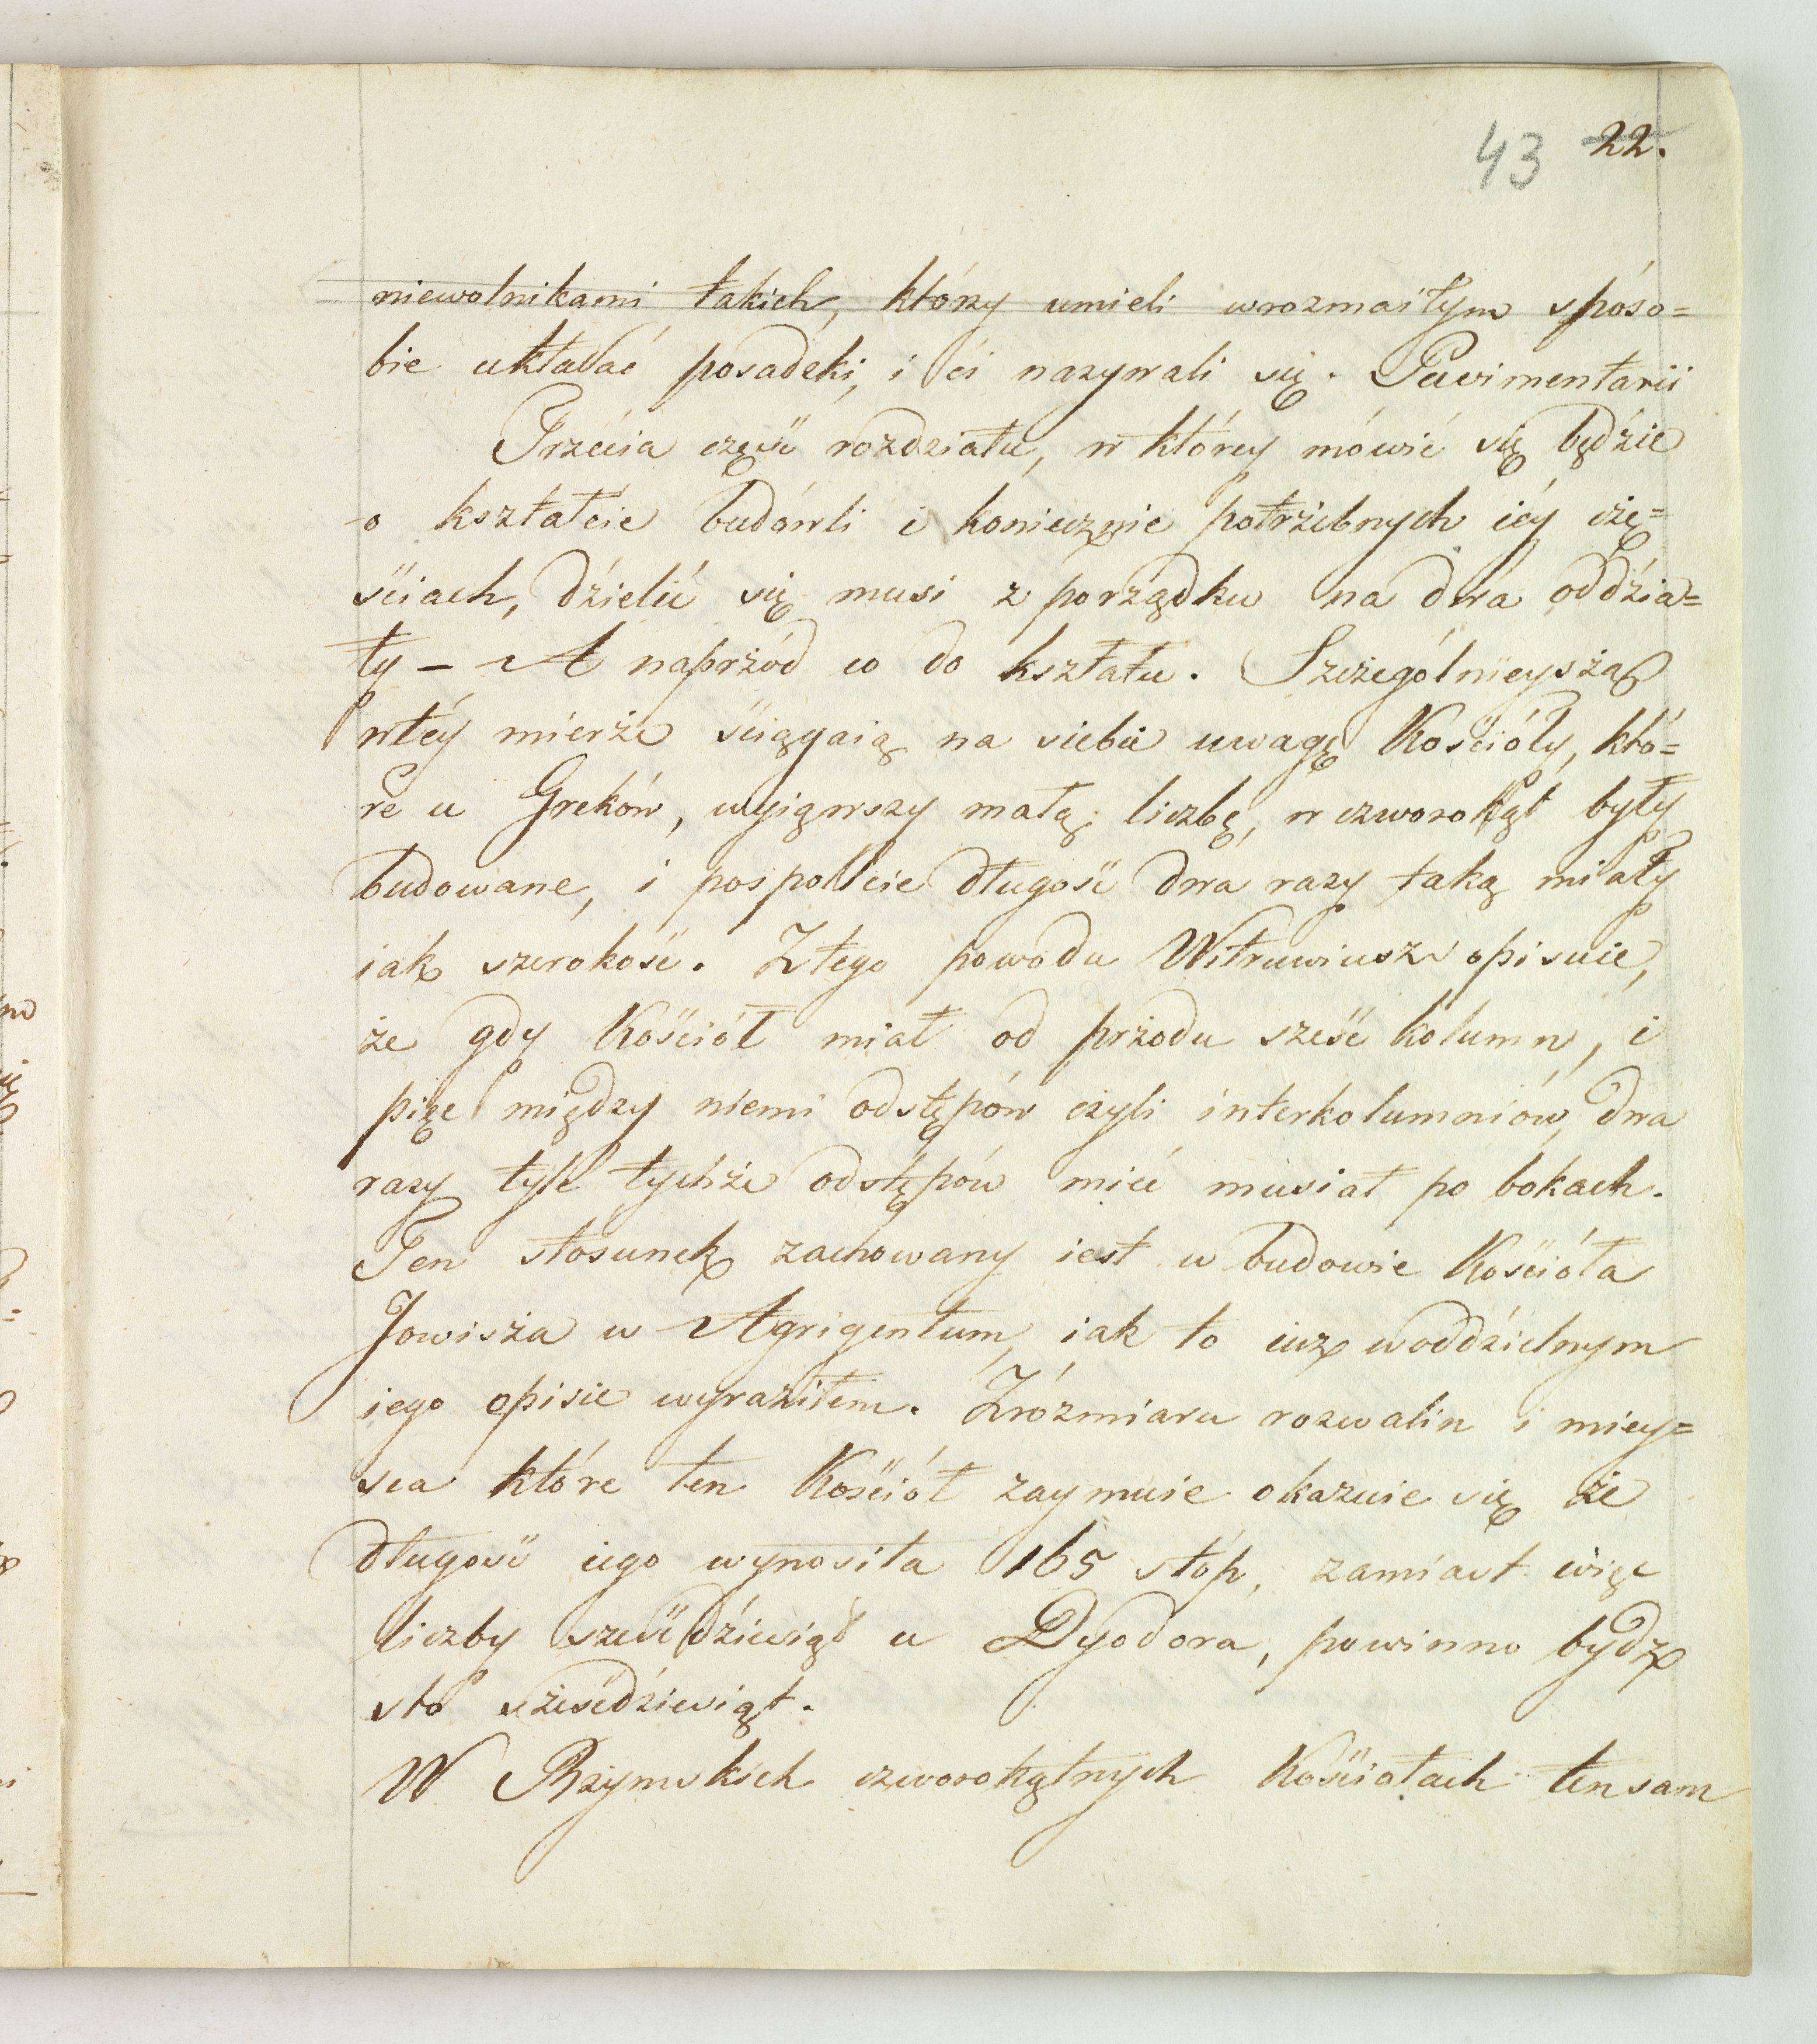 43 22.
niewolnikami takich, którzy umieli wrozmaitym sposo=
bie układać posadzki, i ći nazywali się. Pavimentarii
Trzećia część rozdziału, w którey mówić się będzie
o kształćie budówli i koniecznie potrzebnych iéy czę=
śćiach, dźielić się musi z porządku na dwa oddźia=
ły – A naprzód co do kształtu. Szczególnieyszą
wtéy mierze śćiągaią na siebie uwagę Kośćioły, któ=
re u Greków, wyiąwszy małą liczbę, w czworokąt były
budowane, i pospolićie długość dwa razy taką miały
iak szerokość. Ztego powodu Witruwiusz opisuie,
że gdy Kośćiół miał od przodu sześć kolumn, i
pięć między niemi odstępów czyli interkolumniów, dwa
razy tyle tychże odstępów mieć musiał po bokach.
Ten stosunek zachowany iest w budowie Kośćioła
Jowisza w Agrigentum, iak to iuz woddźielnym
iego opisie wyraziłem. Zrózmiaru rozwalin i miey=
sca które ten Kośćiół zaymuie okazuie się że
długość iego wynosiła 165 stóp, zamiast więc
liczby sześćdźiesiąt u Dyodora, powinno bydz
sto sześćdźiesiąt.
W Rzymskich czworokątnych Kośćiołach tensam